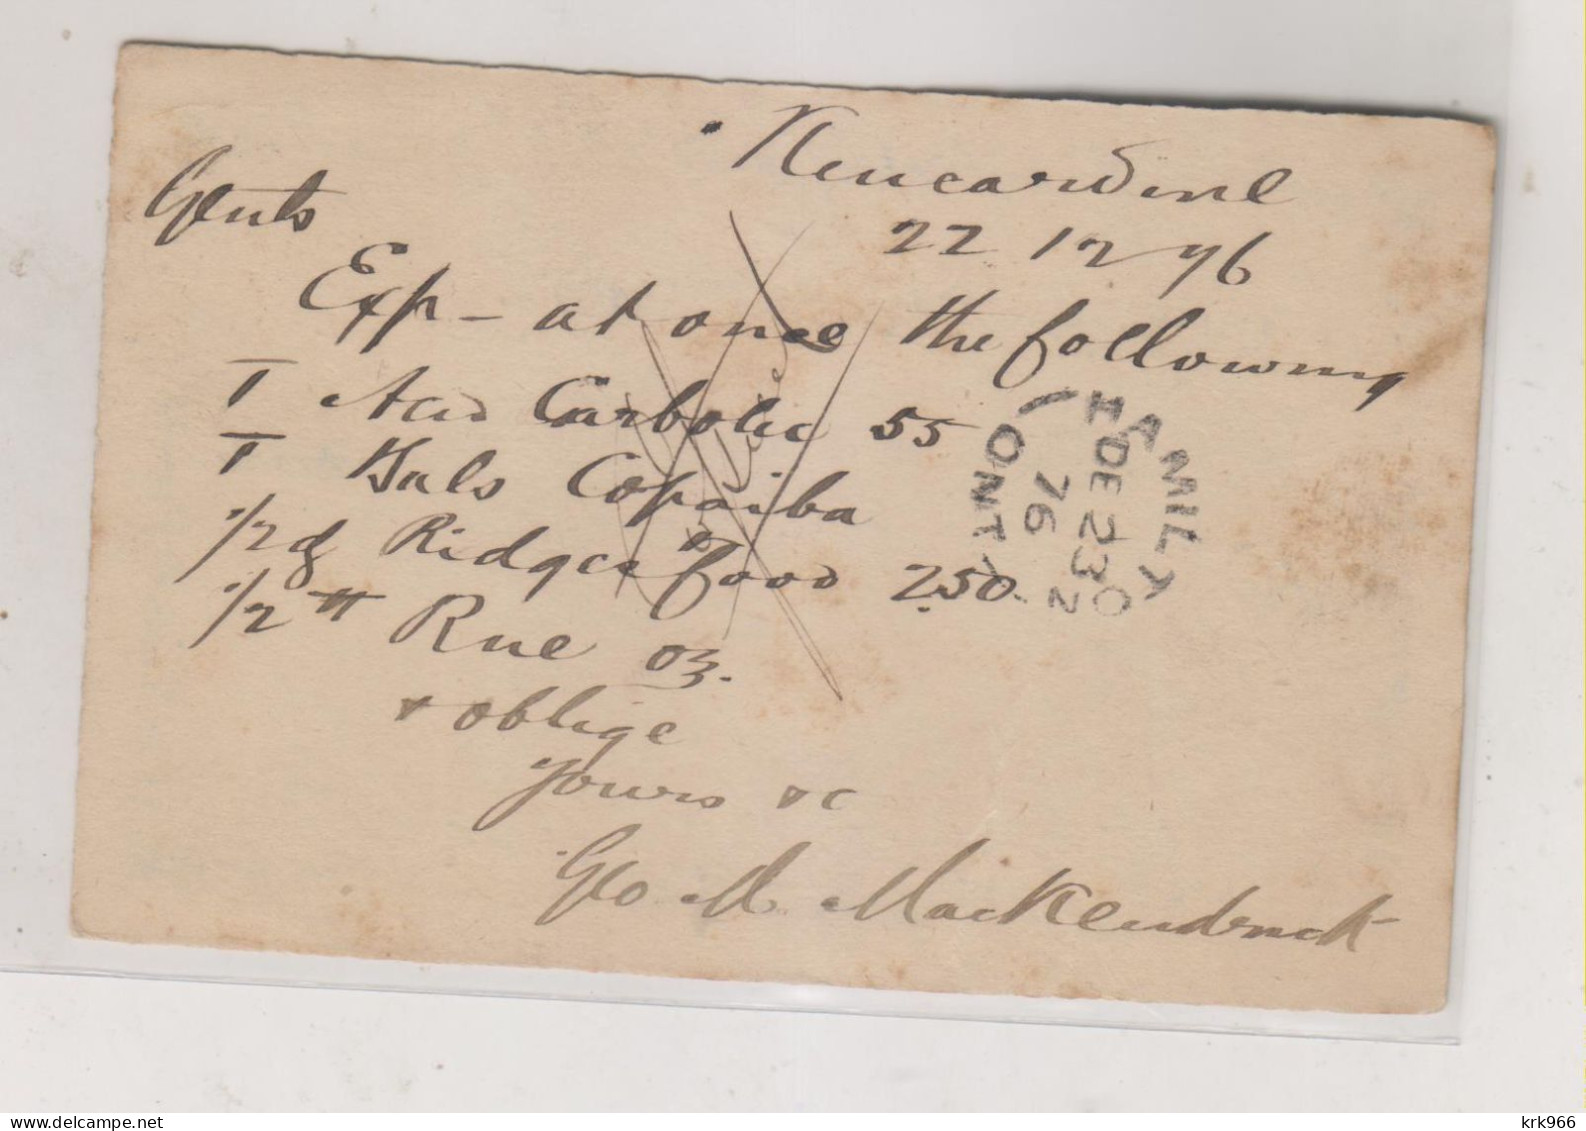 Kincardine
22 12 76
Gents
Exp - at once the following
T Acid Carbolic 55
T Bals Copaiba
1/2 d Ridges food 250
1/2 # Rue 03.
& oblige
yours &c
Geo M. MacKendrick
HAMILTON
DE 23
76
ONT
krk966